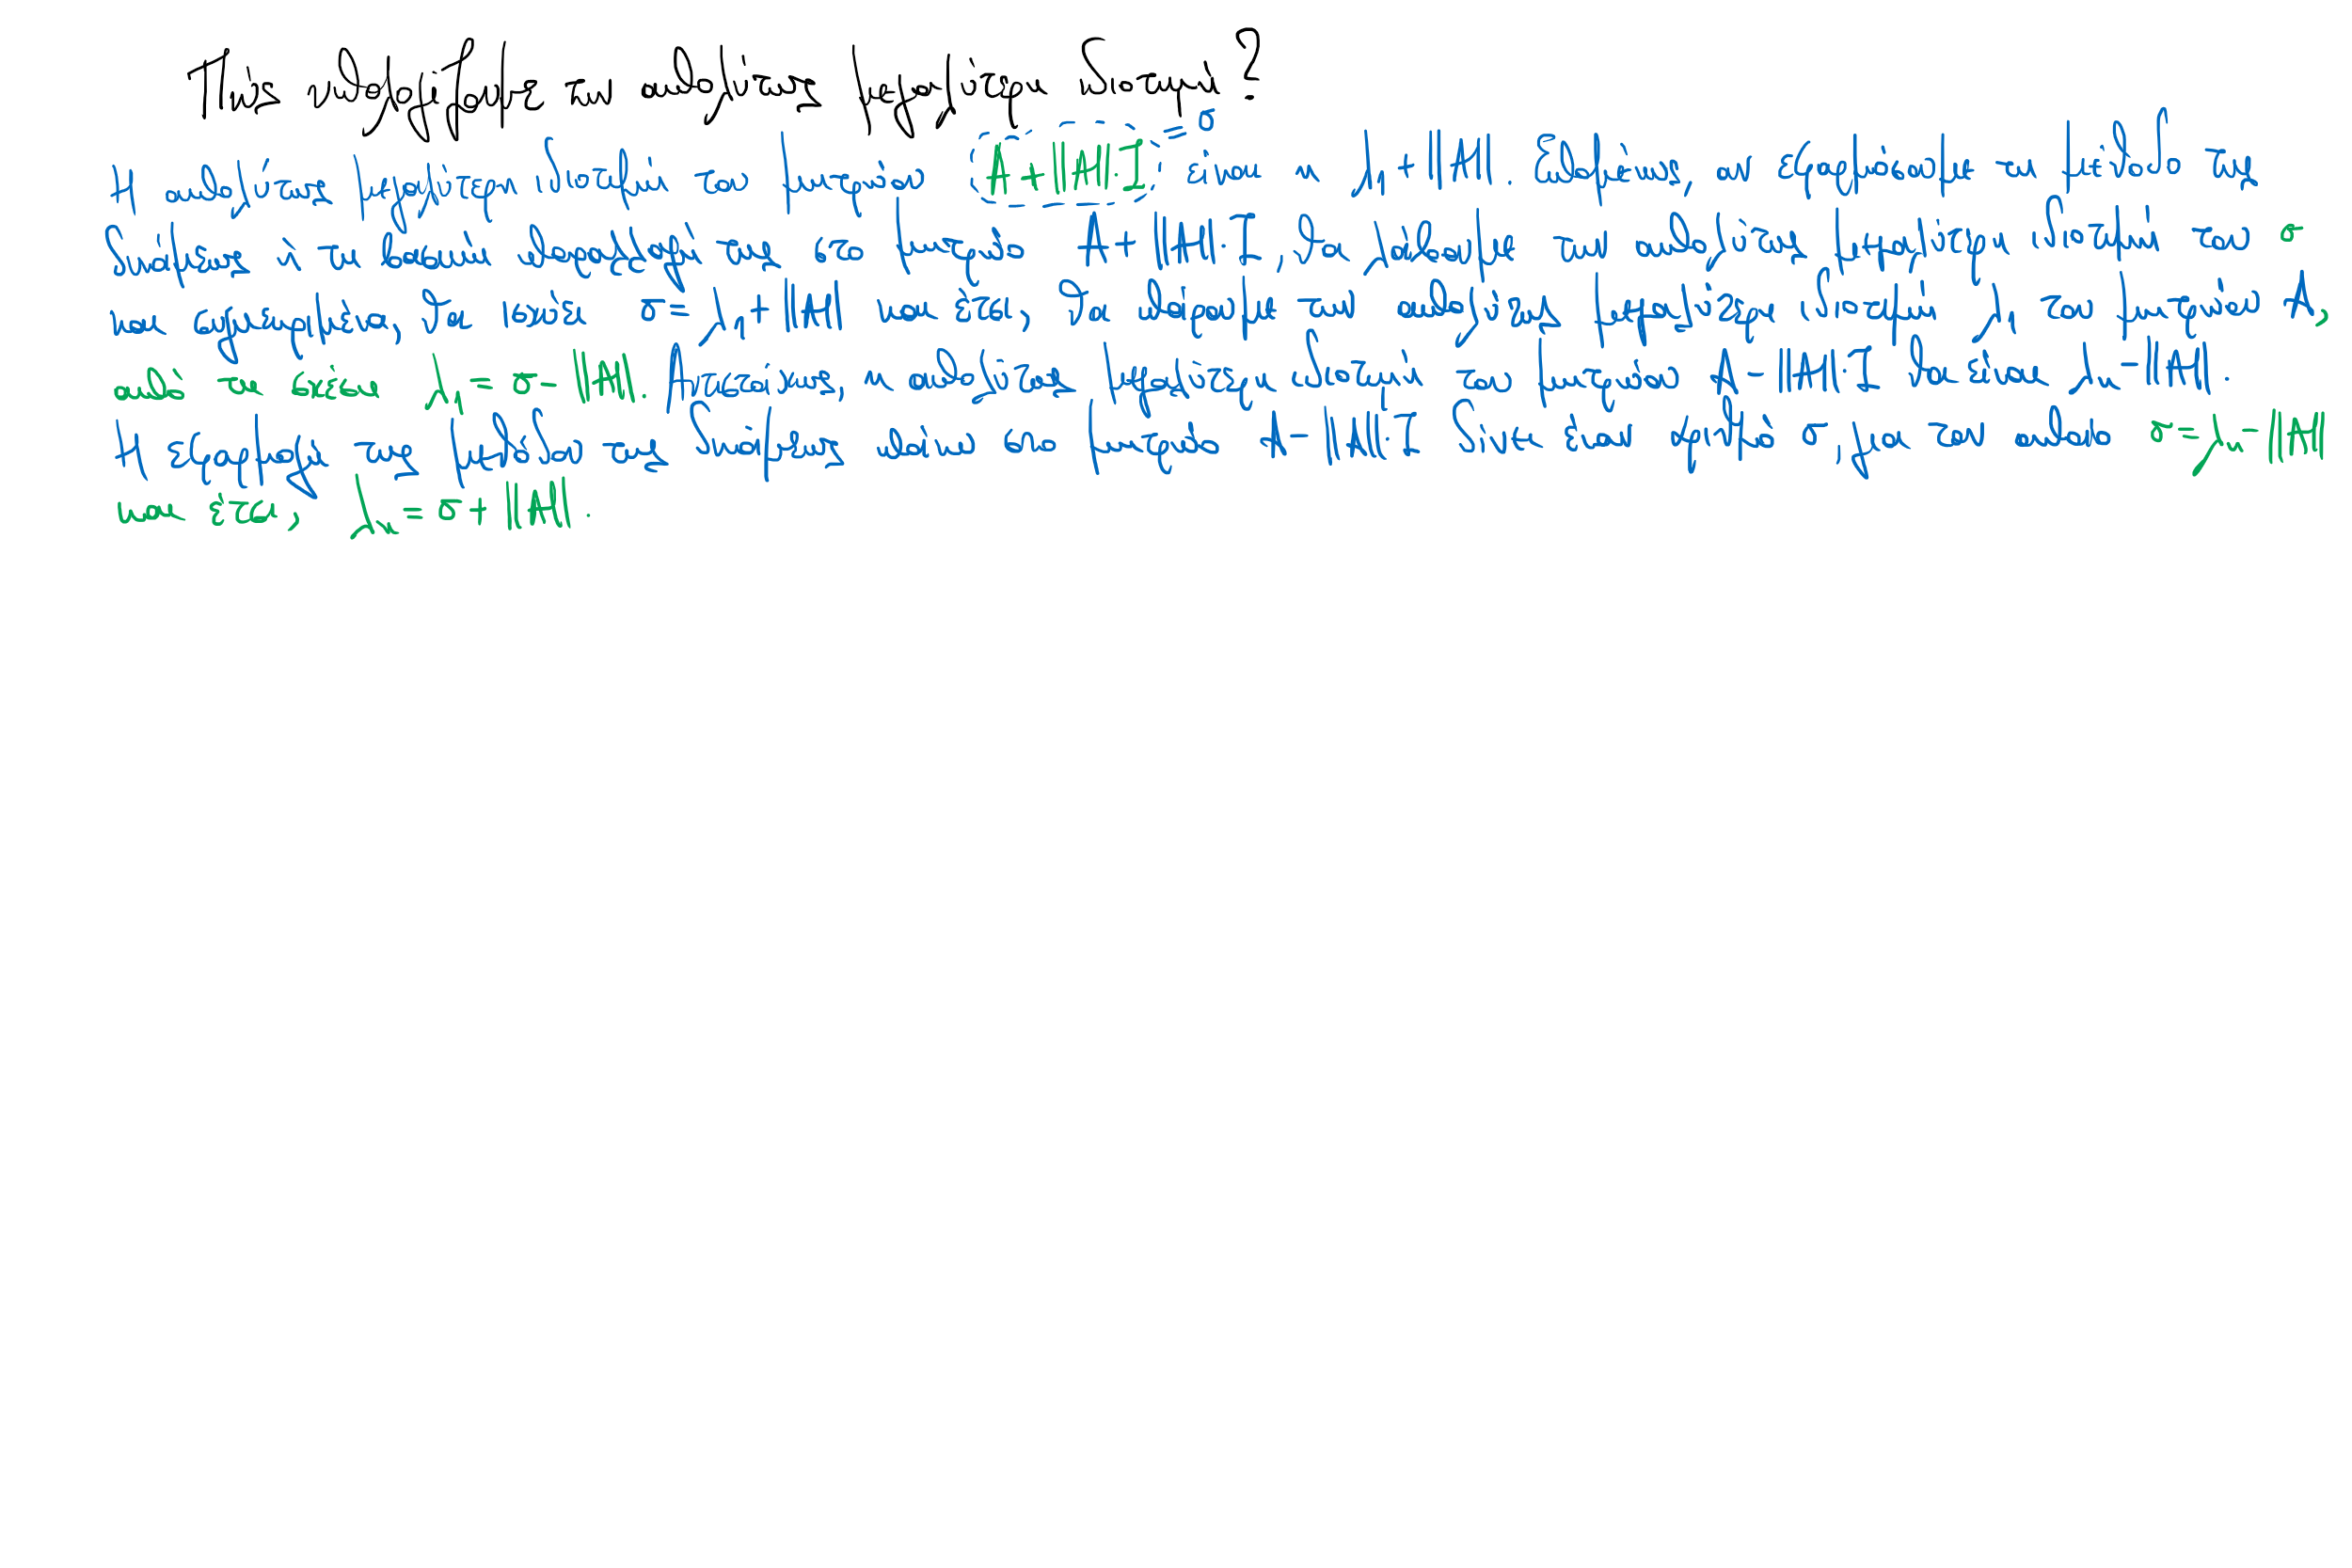 Πώς υπολογίζουμε την απολύτως μεγαλύτερη ιδιοτιμή?
Η απολύτως μεγαλύτερη ιδιοτιμή του μητρώου A+||A||·I = σ είναι η λ₁+||A||. Επομένως, αν εφαρμόσουμε τη μέθοδο της
δυνάμεως ή τη βασική παραλλαγή της στο μητρώο A+||A||·I, θα λάβουμε την απολύτως μεγαλύτερη ιδιοτιμή του σ
και συγκεκριμένα, θα ισχύει σ=λ₁+||A|| και έτσι, θα πάρουμε την απολύτως μεγαλύτερη ιδιοτιμή λ₁ του μητρώου A,
από τη σχέση λ₁=σ-||A||. Αντιστοίχως, η απολύτως μεγαλύτερη ιδιοτιμή του μητρώου A-||A||·I θα είναι λₙ-||A||.
Η εφαρμογή της μεθόδου της δυνάμεως πάνω στο μητρώο A-||A||·I δίνει έναν αριθμό σ, για τον οποίο σ=λₙ-||A||
και έτσι, λₙ=σ+||A||.